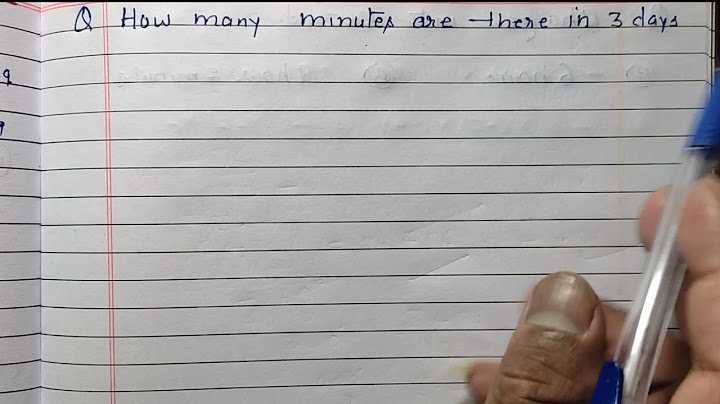 Q How many minutes are there in 3 days